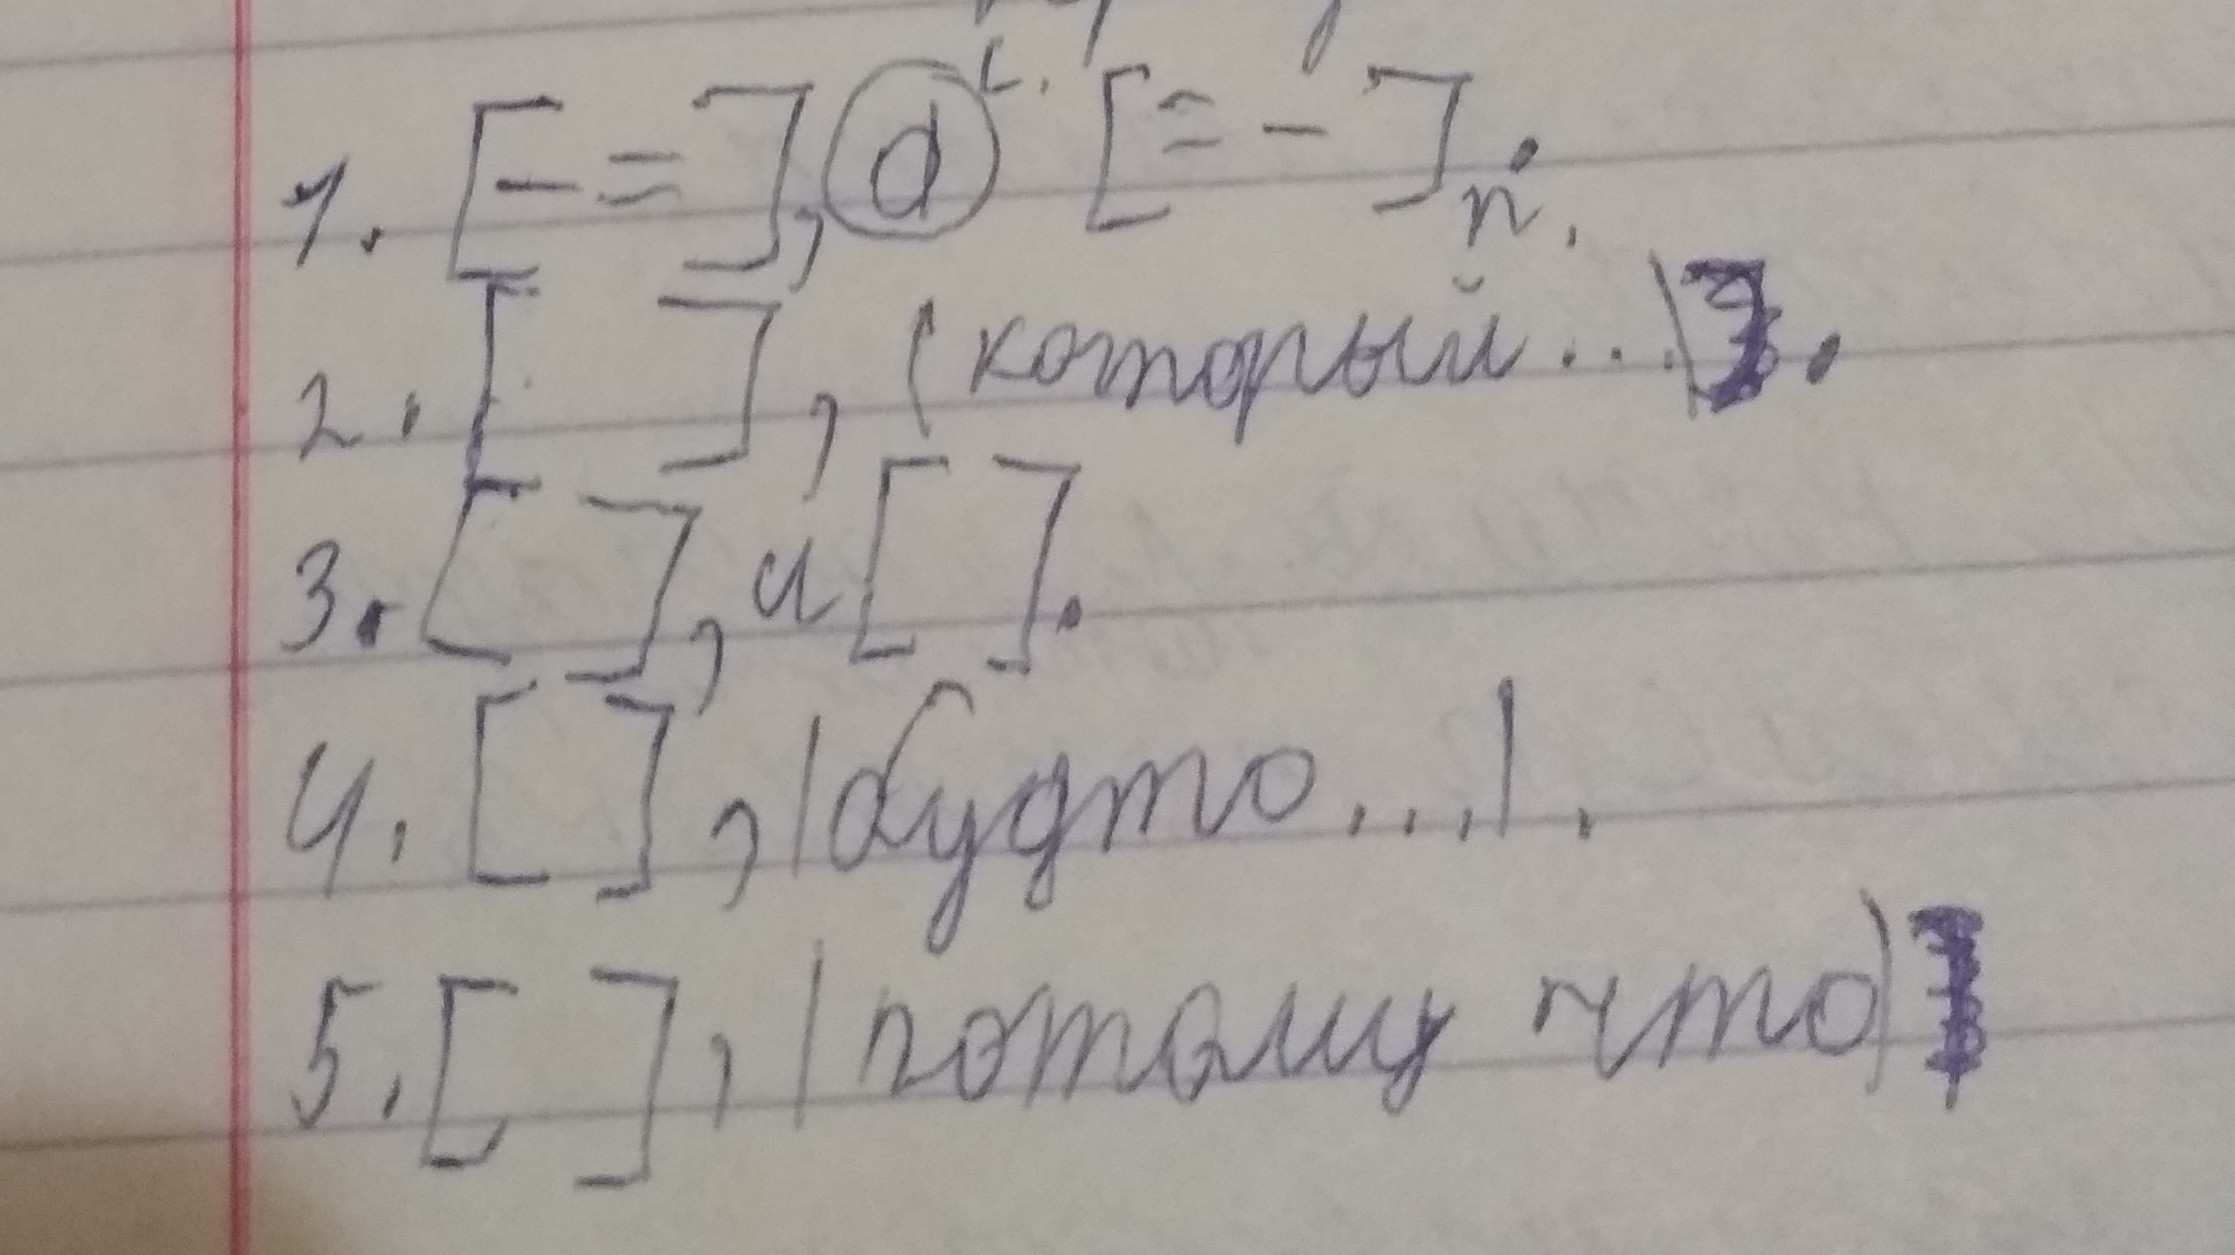 1. [— =], а с. [= —] п.
2. [ ], (который...).
3. [ ], и [ ].
4. [ ], (будто...).
5. [ ], (потому что)